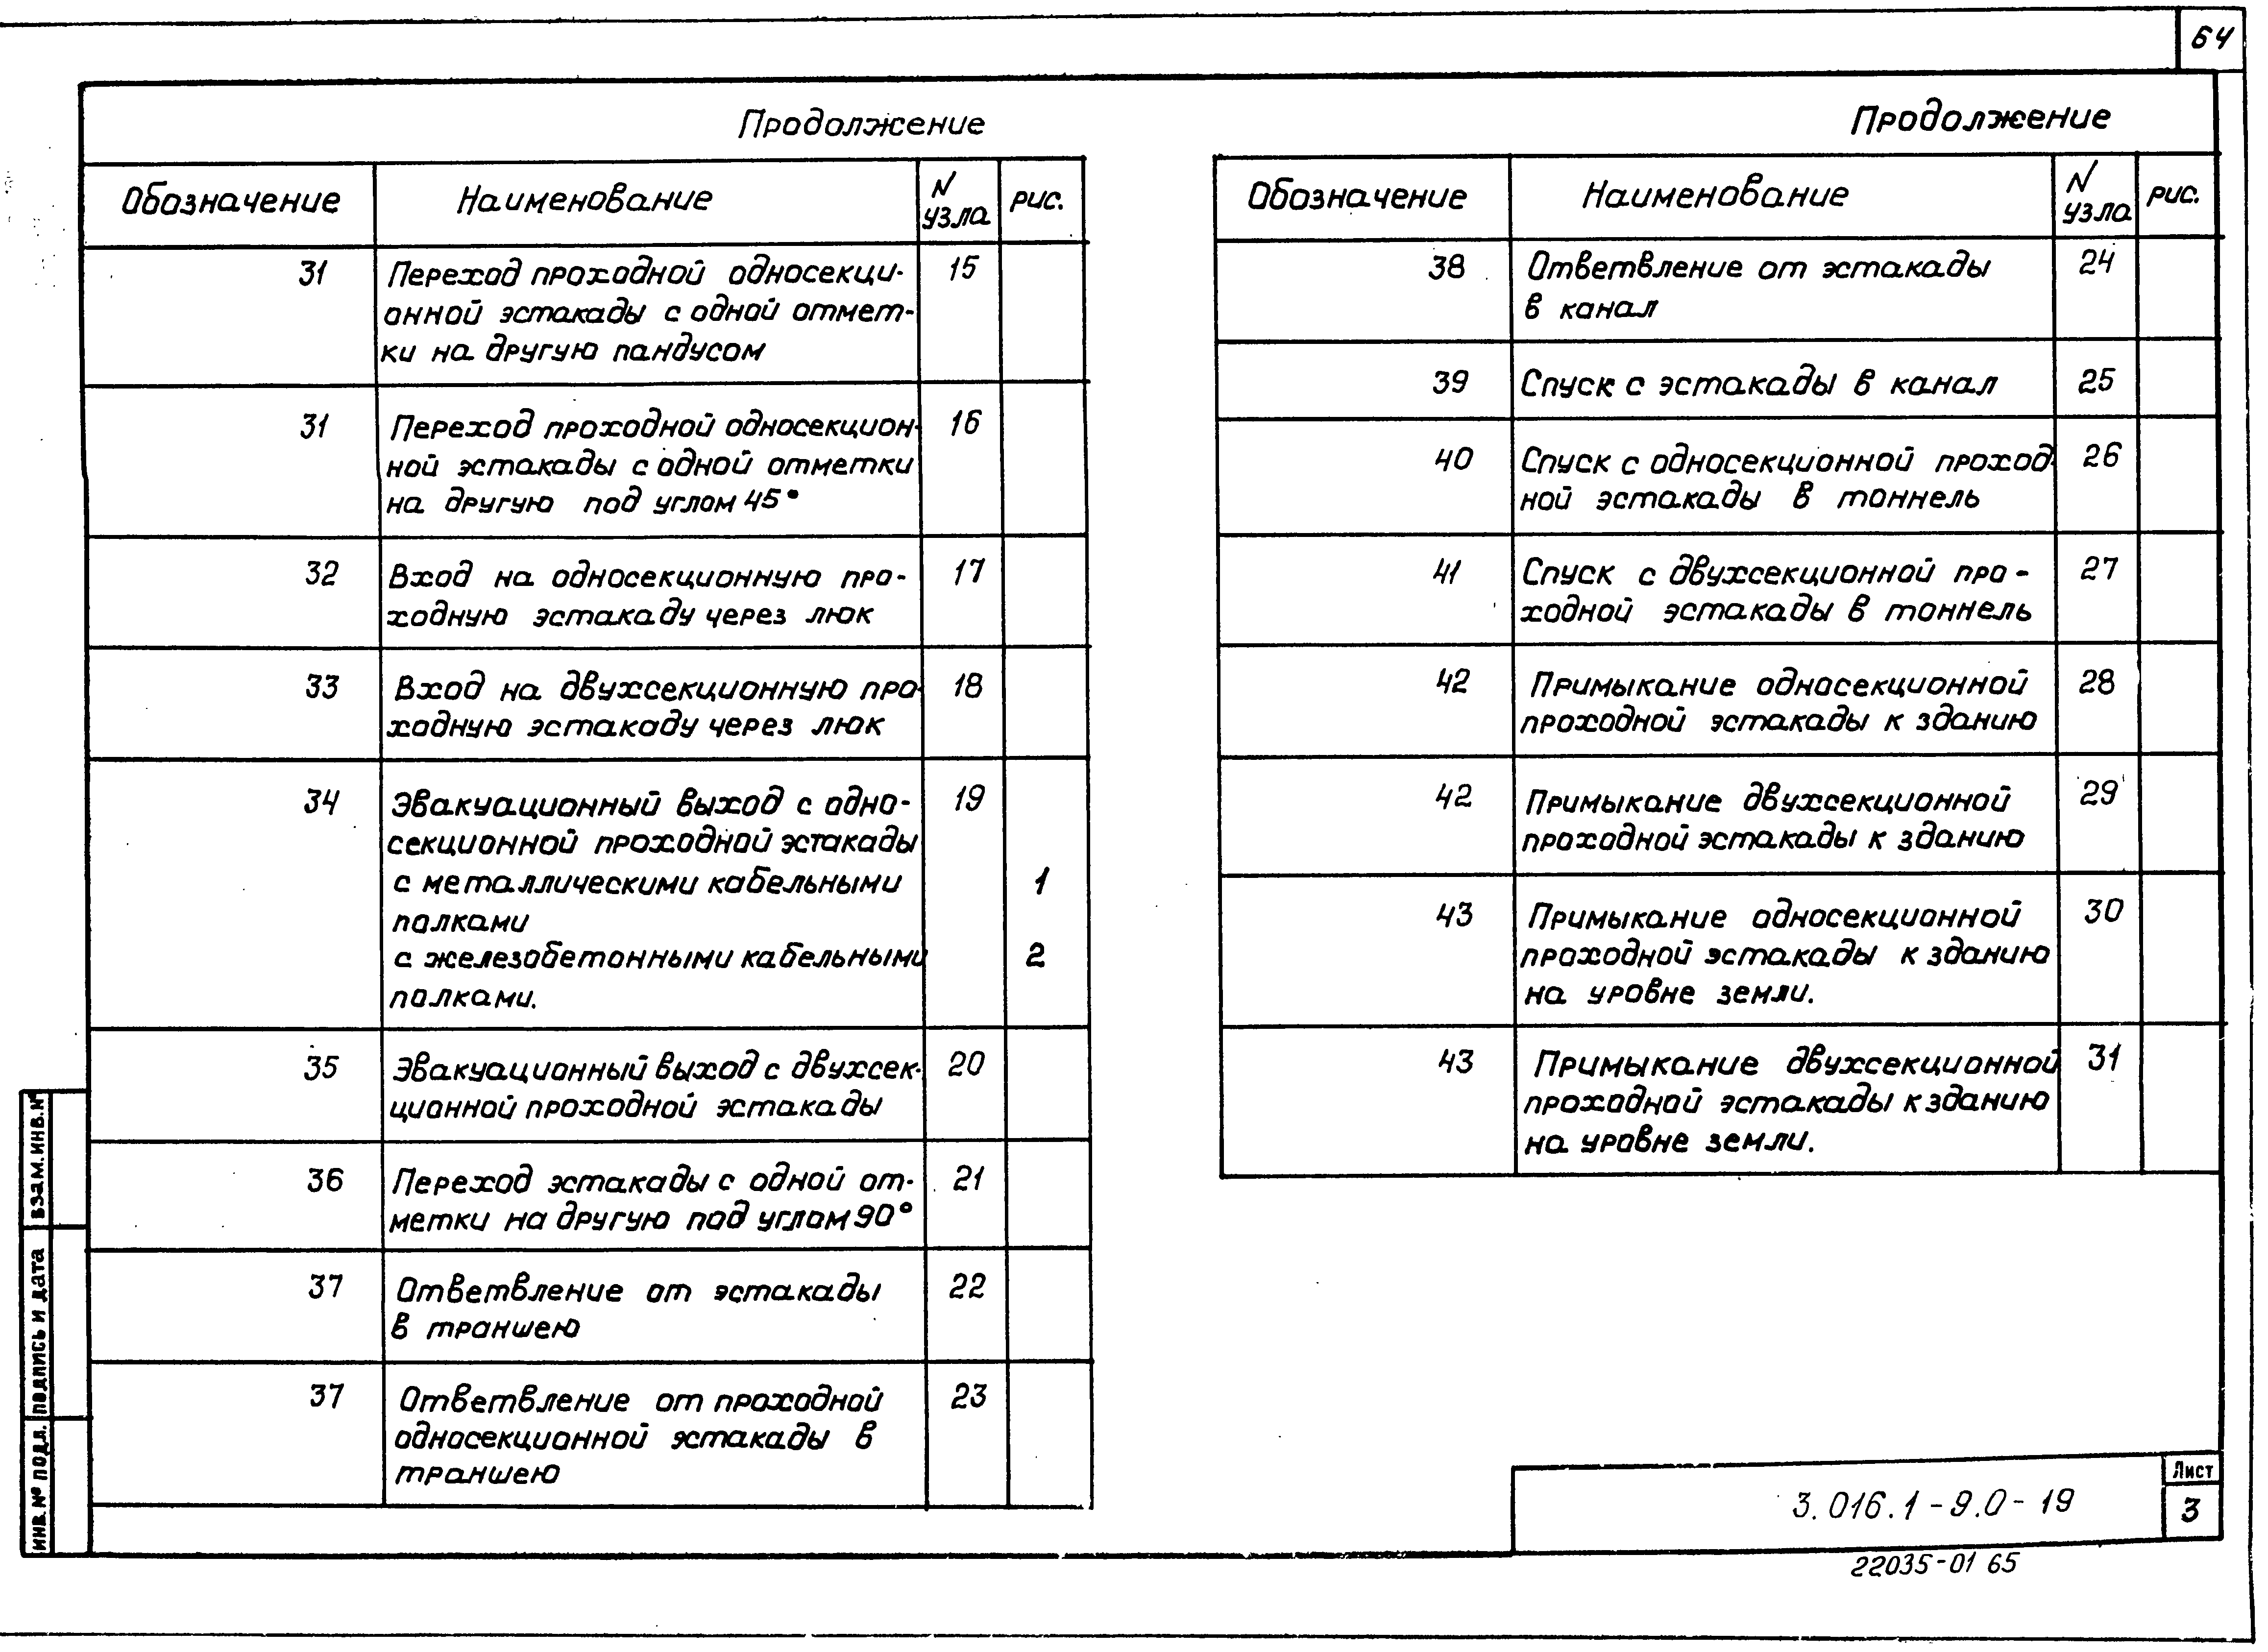 64
Продолжение
Обозначение Наименование N узла рис.
31 Переход проходной односекци- 15
онной эстакады с одной отмет-
ки на другую пандусом
31 Переход проходной односекцион- 16
ной эстакады с одной отметки
на другую под углом 45°
32 Вход на односекционную про- 17
ходную эстакаду через люк
33 Вход на двухсекционную про- 18
ходную эстакаду через люк
34 Эвакуационный выход с одно- 19
секционной проходной эстакады
с металлическими кабельными 1
полками
с железобетонными кабельными 2
полками.
35 Эвакуационный выход с двухсек- 20
ционной проходной эстакады
36 Переход эстакады с одной от- 21
метки на другую под углом 90°
37 Ответвление от эстакады 22
в траншею
37 Ответвление от проходной 23
односекционной эстакады в
траншею
Продолжение
Обозначение Наименование N узла рис.
38 Ответвление от эстакады 24
в канал
39 Спуск с эстакады в канал 25
40 Спуск с односекционной проход- 26
ной эстакады в тоннель
41 Спуск с двухсекционной про- 27
ходной эстакады в тоннель
42 Примыкание односекционной 28
проходной эстакады к зданию
42 Примыкание двухсекционной 29
проходной эстакады к зданию
43 Примыкание односекционной 30
проходной эстакады к зданию
на уровне земли.
43 Примыкание двухсекционной 31
проходной эстакады к зданию
на уровне земли.
ИНВ. № ПОДЛ. ПОДПИСЬ И ДАТА ВЗАМ. ИНВ. №
3.016.1-9.0-19
Лист
3
22035-01 65